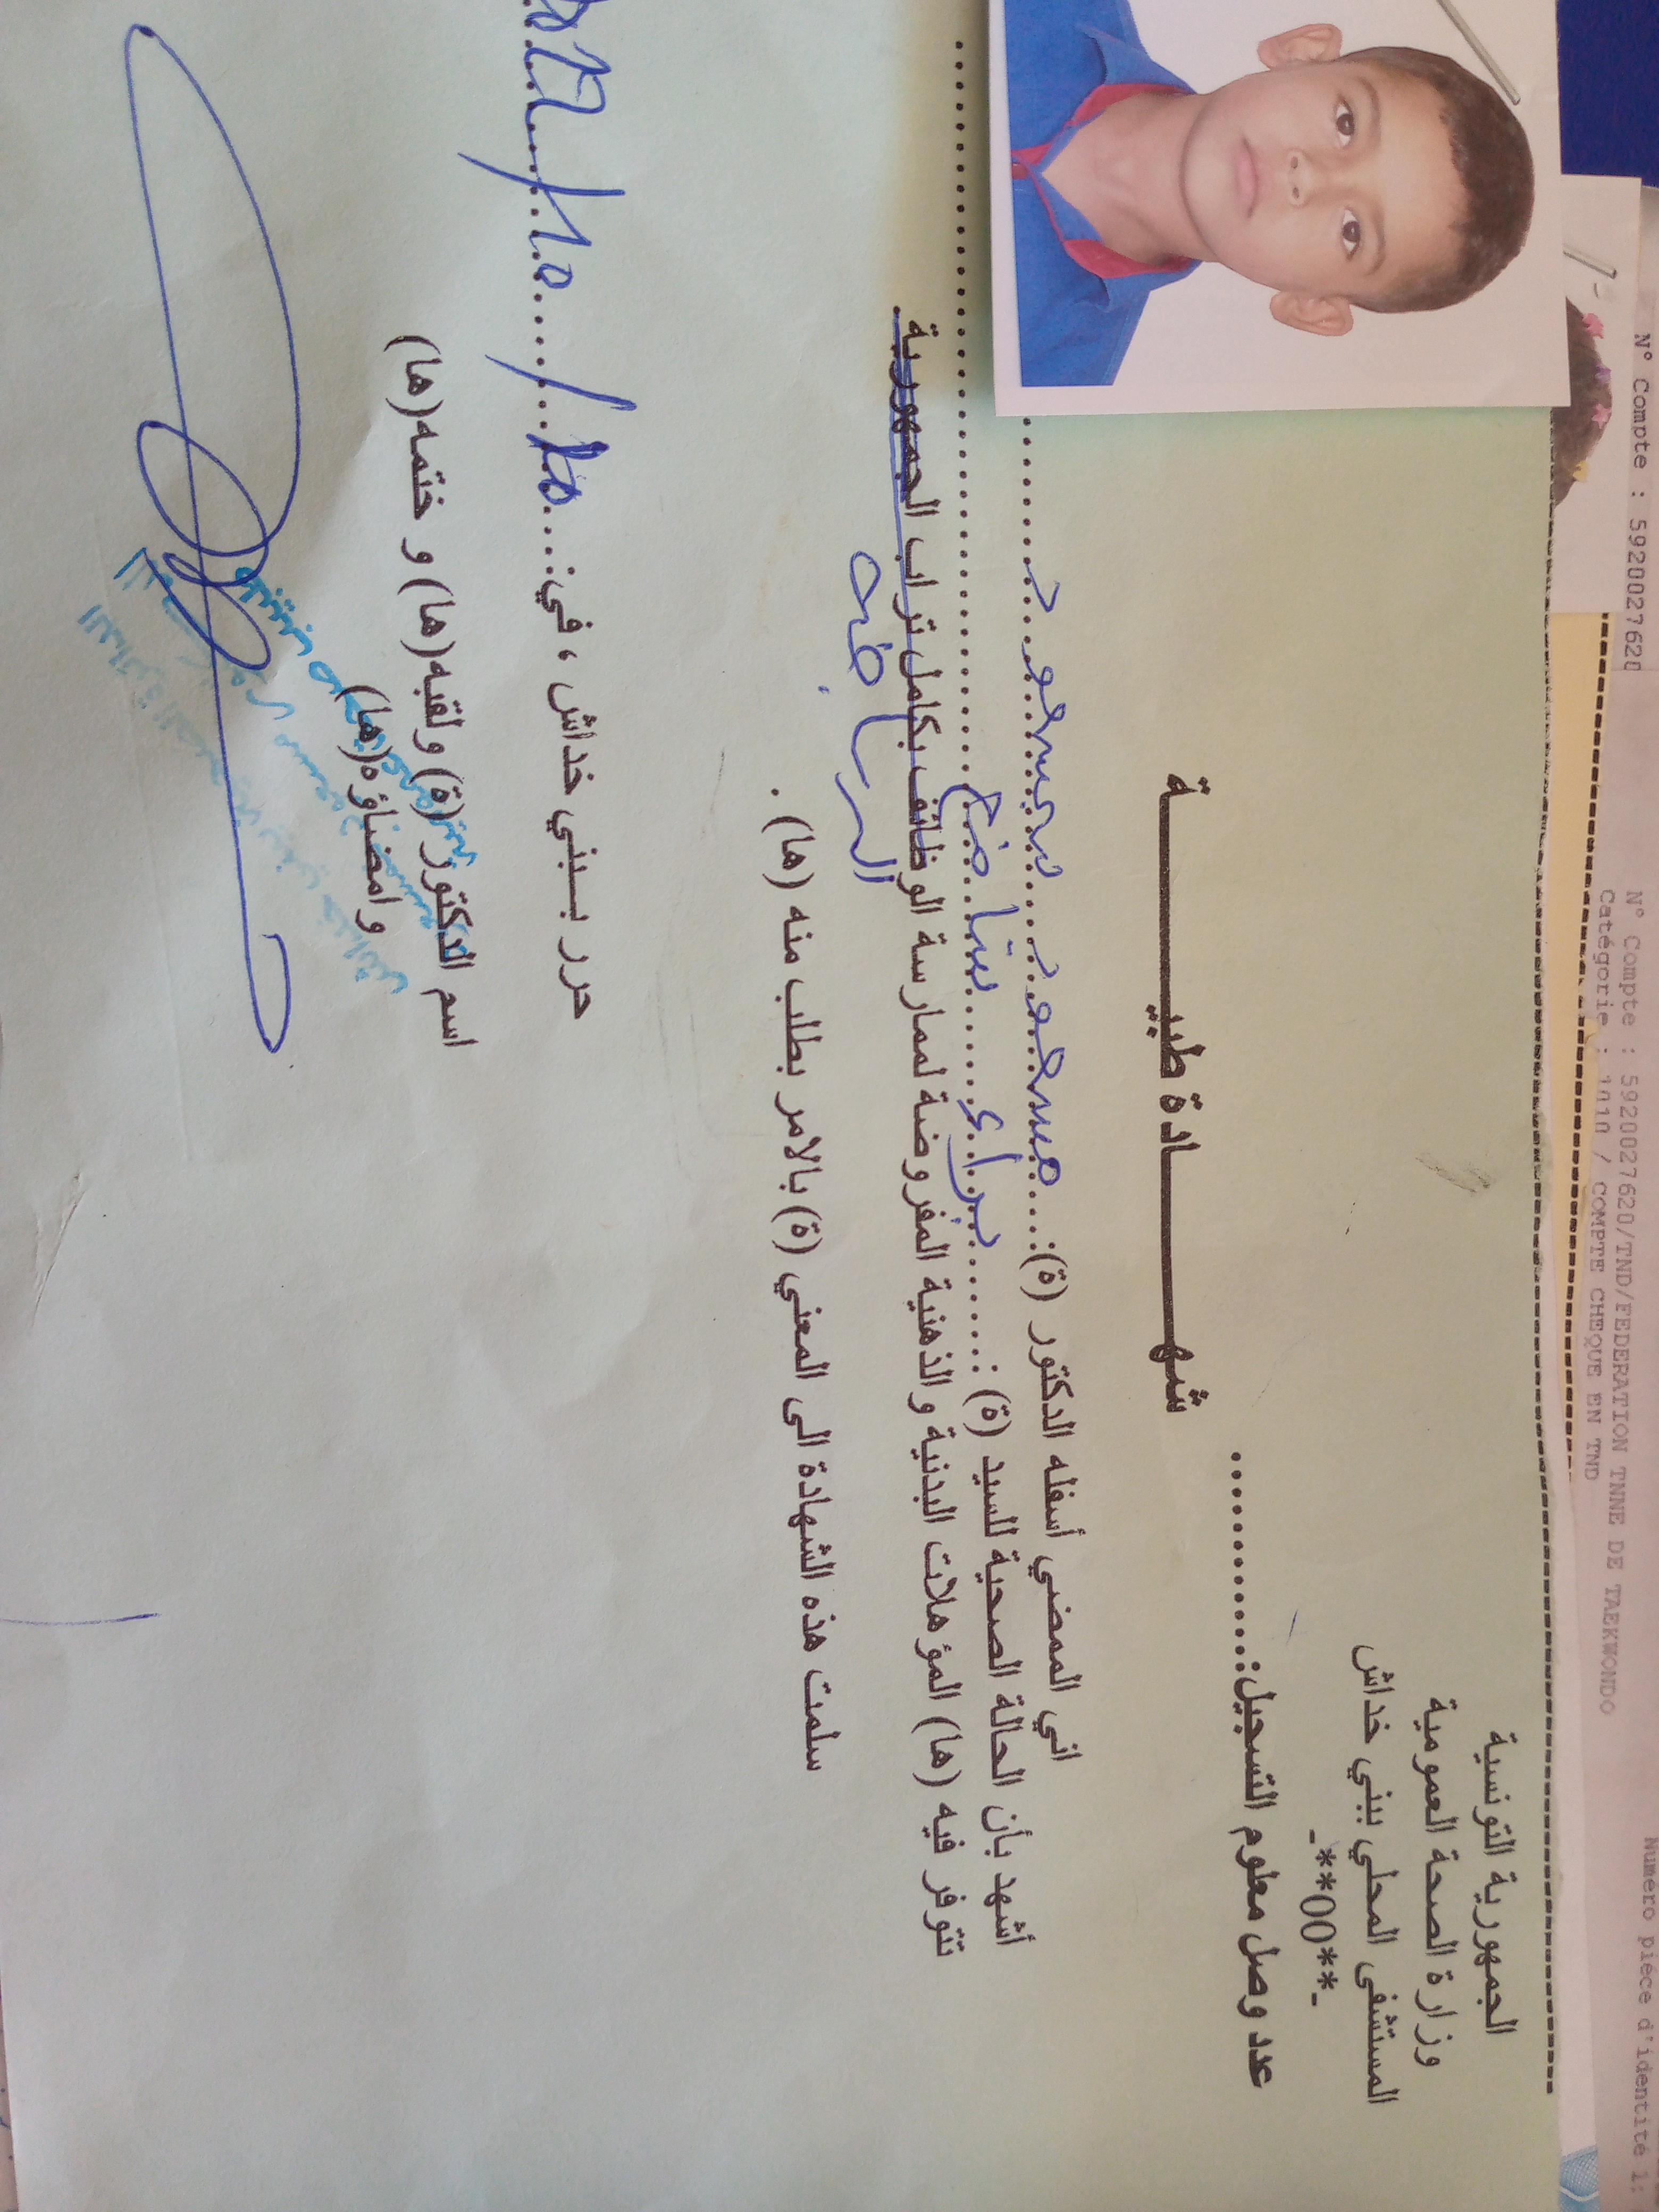 الجمهورية التونسية
وزارة الصحة العمومية
المستشفى المحلي ببني خداش
-**00**-
عدد وصل معلوم التسجيل:............
شهـــــادة طبيـــــــة
اني الممضي أسفله الدكتور (ة):.... مسعود ..... بنمسعود
أشهد بأن الحالة الصحية للسيد (ة) :....... براء ...... بتاضح
تتوفر فيه (ها) المؤهلات البدنية و الذهنية المفروضة لممارسة الوظائف بكامل تراب الجمهورية.
الرياضة
سلمت هذه الشهادة الى المعني (ة) بالامر بطلب منه (ها) .
حرر بـبني خداش ، في:
اسم الدكتور (ة) ولقبه(ها) و ختمه(ها)
وامضاؤه(ها)
N° Compte : 5920027620
N° Compte : 5920027620/TND/FEDERATION TNNE DE TAEKWONDO
Catégorie : 1010 / COMPTE CHEQUE EN TND
Numéro pièce d'identité 1: